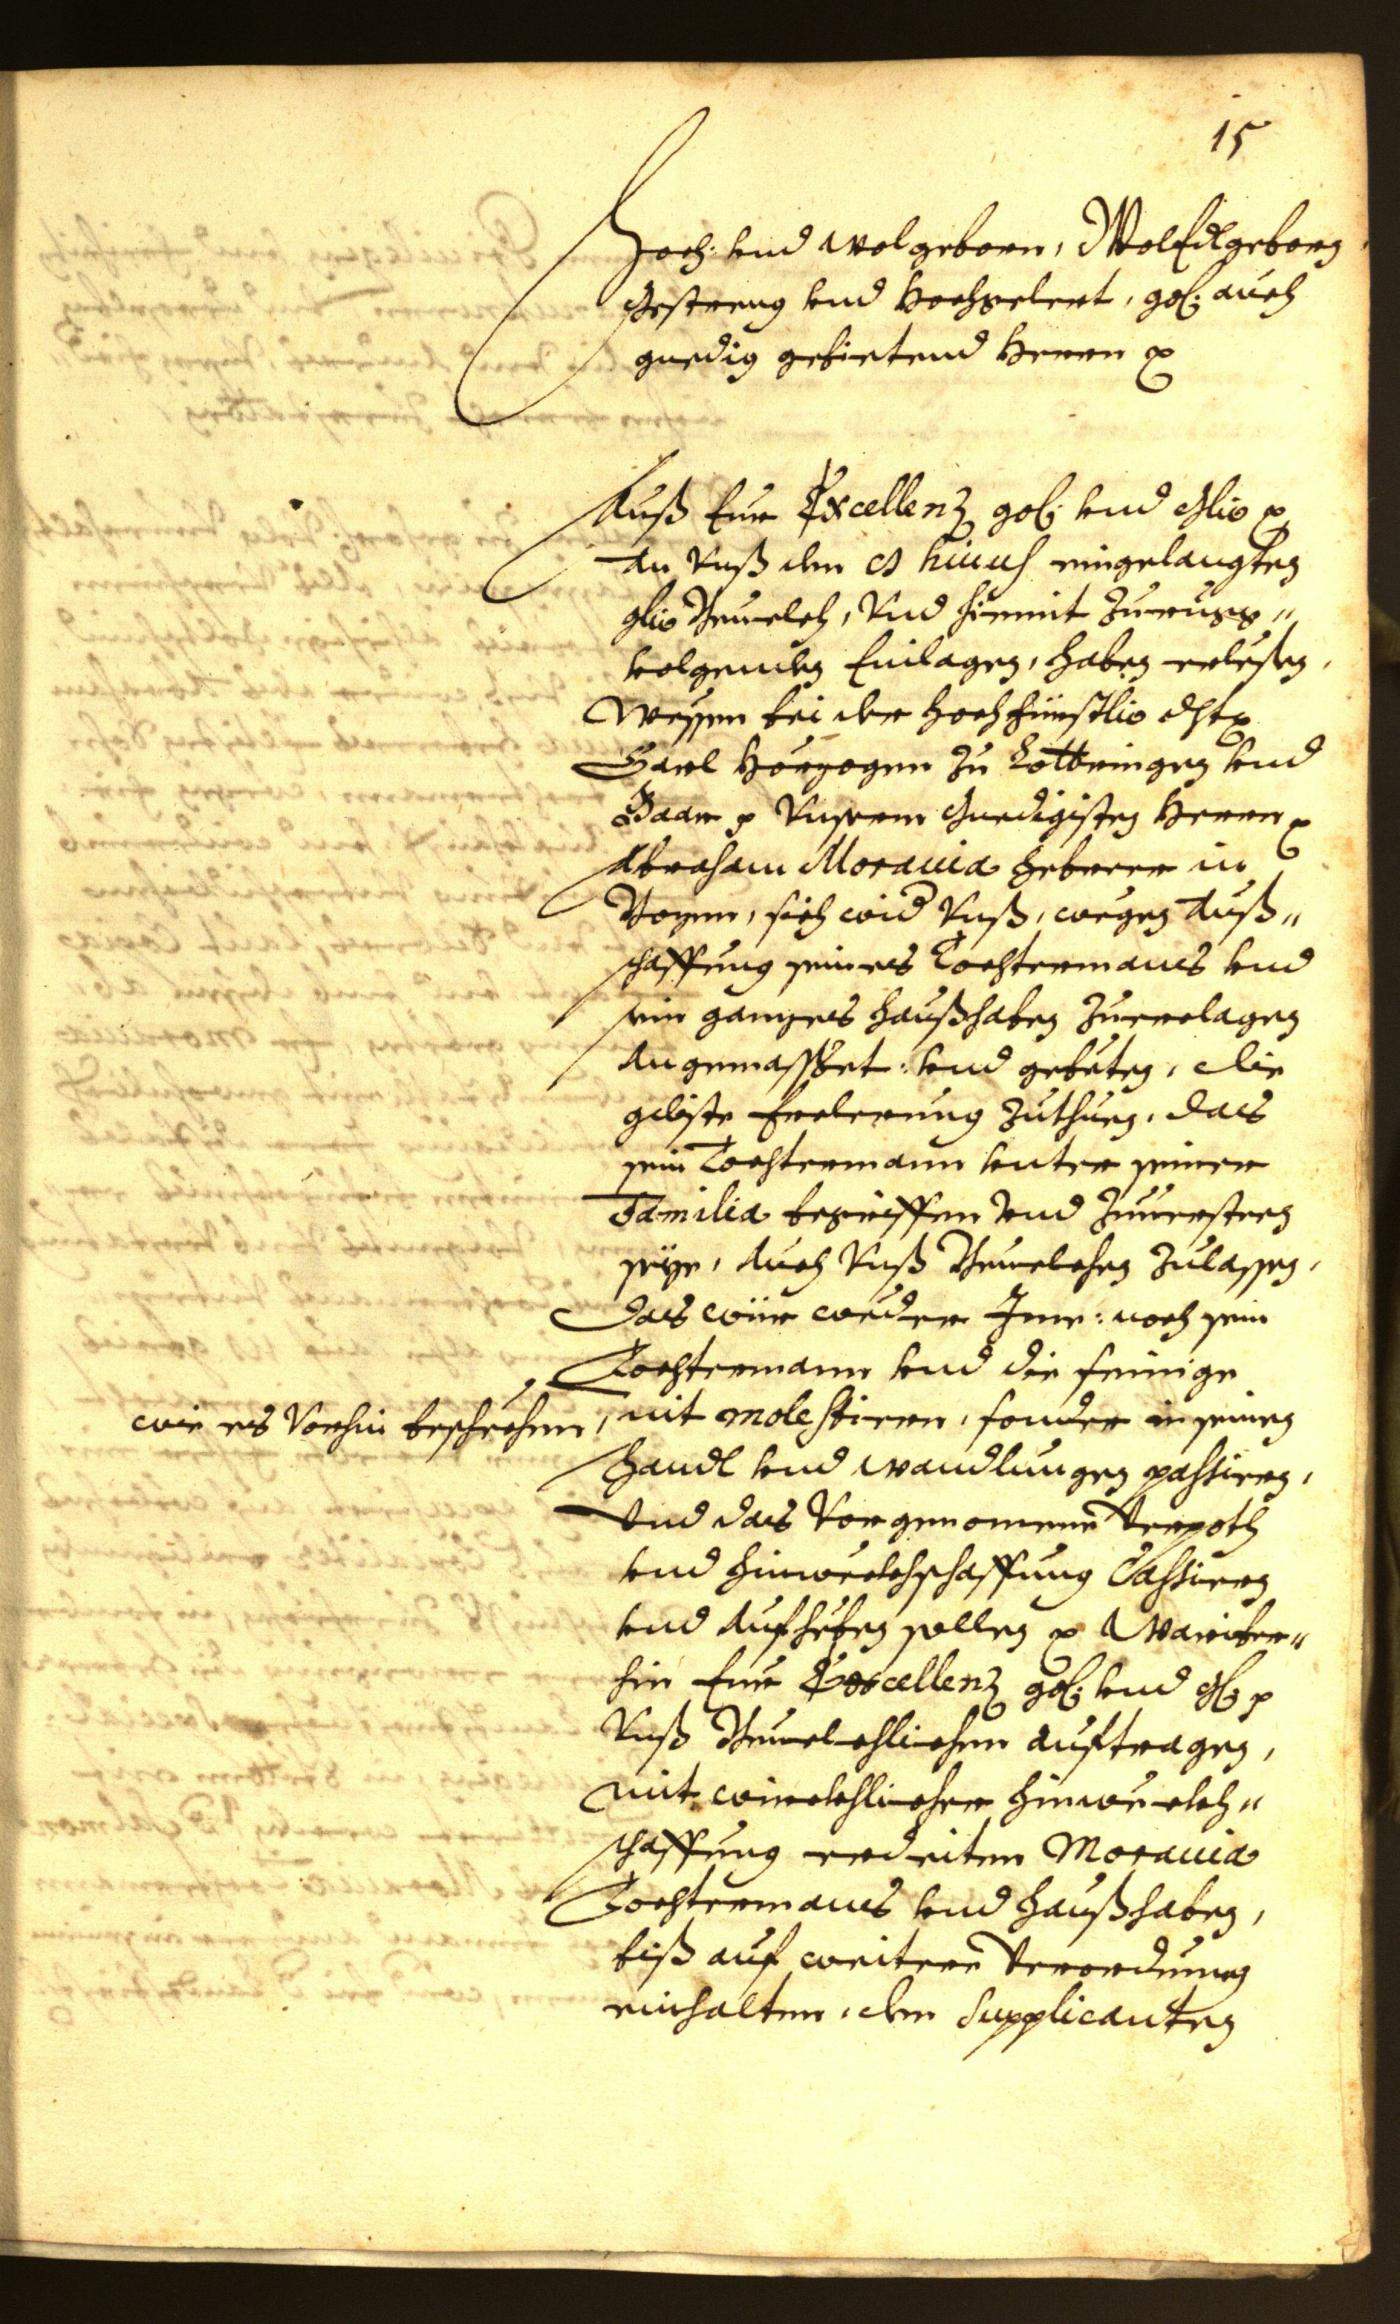 15
Hoch: vnd wolgeborn, WolEdlgeborn,
Gestreng vnd Hochgelert, g: auch
gnedig gebietend Herrn p
Auß Eur Excellenz g: vnd Glio p
An Vnß den huius eingelangten
glio Beuelch, Vnd hiemit zuruckh
volgenden Einlagen, haben erlesen,
Wessen bei der Hochfürstlio p
Carl Hörzogen zu Lottringen vnd
Baar p Vnserm Gnedigisten Herrn p
Abraham Morauia Hebreer in
Bozen, sich wid Vnß, wegen Auß„
schaffung seines Tochtermans vnd
sein ganzes Haußhaben zuerclagen
Angemasset: vnd gebeten, die
gdiste Erclerung zuthuen, das
sein Tochtermann vnter seiner
Familia begriffen vnd zuuersteen
seye, Auch Vnß Beuelchen zulassen,
das wür weder Ime: noch sein
Tochtermann vnd die seinige
wie es Vorhin beschechen, nit molestieren, sonder in seinen
Handl vnd wandlungen passieren,
vnd das Vorgenomene Verpoth
vnd Hinweckhschaffung Cassieren
vnd Aufheben sollen p Warüber„
hin Eur Excellenz g: vnd p
Vnß Beuelchlichen auftragen,
mit würcklicher Hinweckh„
schaffung erdeiten Morauia
Tochtermans vnd Haußhaben,
biß auf weitere Verordnung
einhalten, den Supplicanten